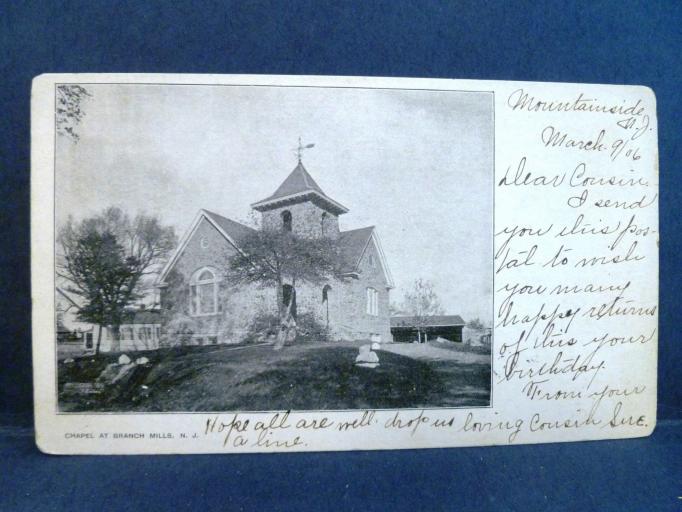 Mountainside,
N.J.
March. 9/06
Dear Cousin.
I send
you this pos-
tal to wish
you many
happy returns
of this your
birthday.
From your
loving Cousin
Hope all are well. drop us
a line.
CHAPEL AT BRANCH MILLS, N. J.